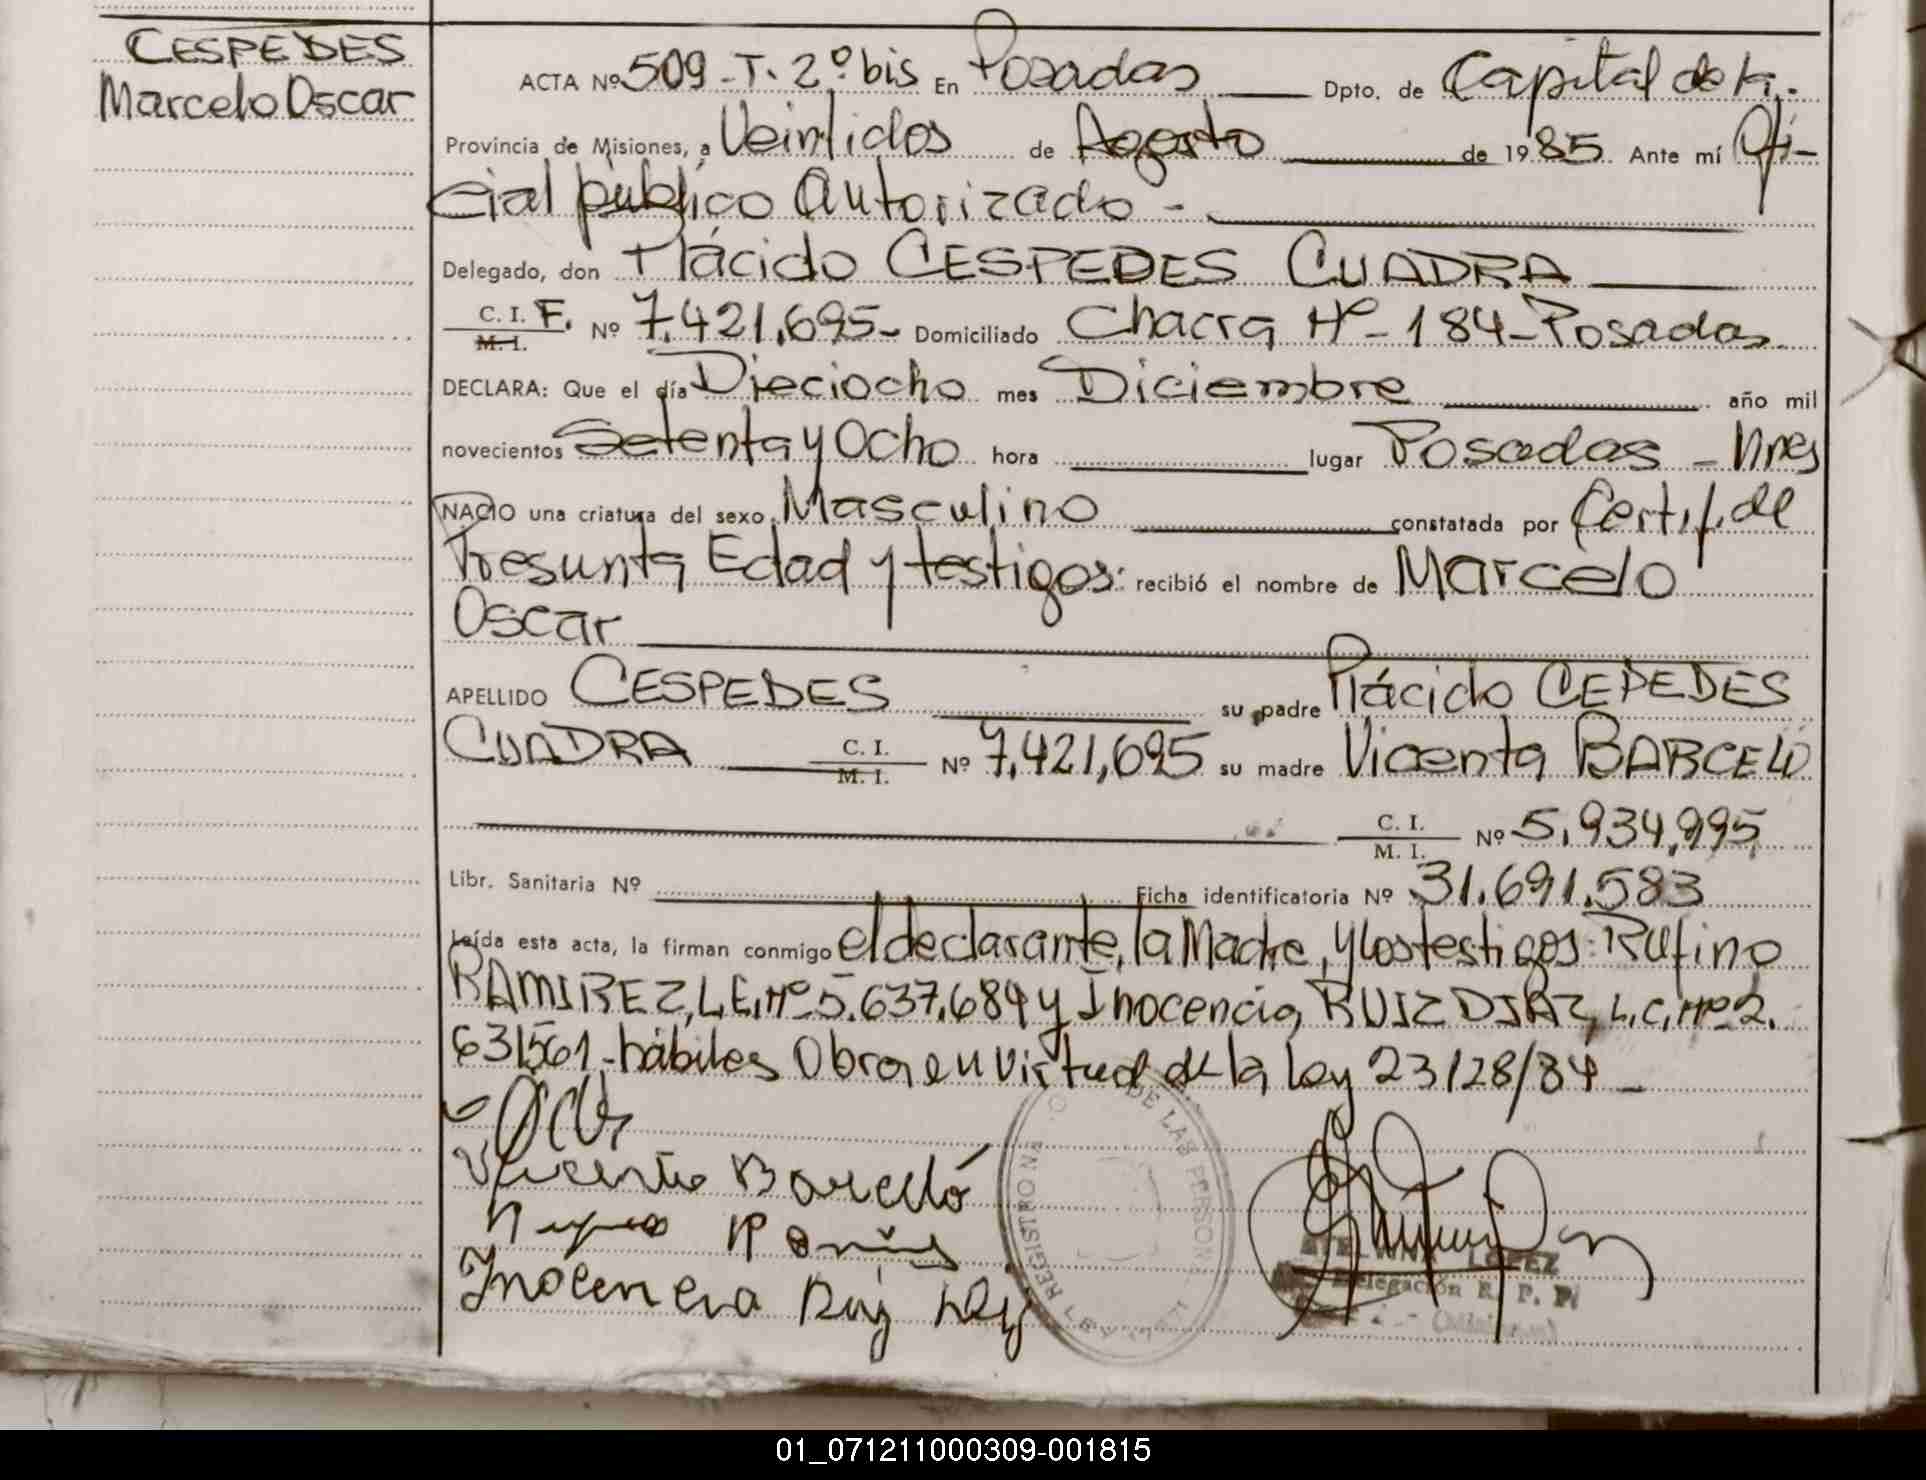 CESPEDES
Marcelo Oscar
ACTA Nº 509-T. 2º bis En Posadas Dpto. de Capital de la.
Provincia de Misiones, a Veintidos de Agosto de 1985. Ante mí Ofi-
cial público Autorizado -
Delegado, don Plácido CESPEDES CUADRA
C. I. F. M. I. Nº 7,421,695- Domiciliado Chacra Nº-184-Posadas
DECLARA: Que el día Dieciocho mes Diciembre año mil
novecientos Setenta y Ocho hora lugar Posadas - Mnes
NACIO una criatura del sexo Masculino constatada por Certif. de
Presunta Edad y testigos: recibió el nombre de Marcelo
Oscar
APELLIDO CESPEDES su padre Plácido CEPEDES
CUADRA C. I. M. I. Nº 7,421,695 su madre Vicenta BARCELÓ
C. I. M. I. Nº 5,934,995
Libr. Sanitaria Nº Ficha identificatoria Nº 31.691.583
Leída esta acta, la firman conmigo el declarante, la Madre, y los testigos: Rufino
RAMIREZ, L.E. Nº 5.637.684 y Inocencia RUIZ DIAZ, L.C. Nº 2.
631561-hábiles Obra en virtud de la Ley 23128/84 -
Vicenta Barceló
Inocencia Ruiz
REGISTRO DE LAS PERSON
LOPEZ
Delegación R. P. P.
01_071211000309-001815